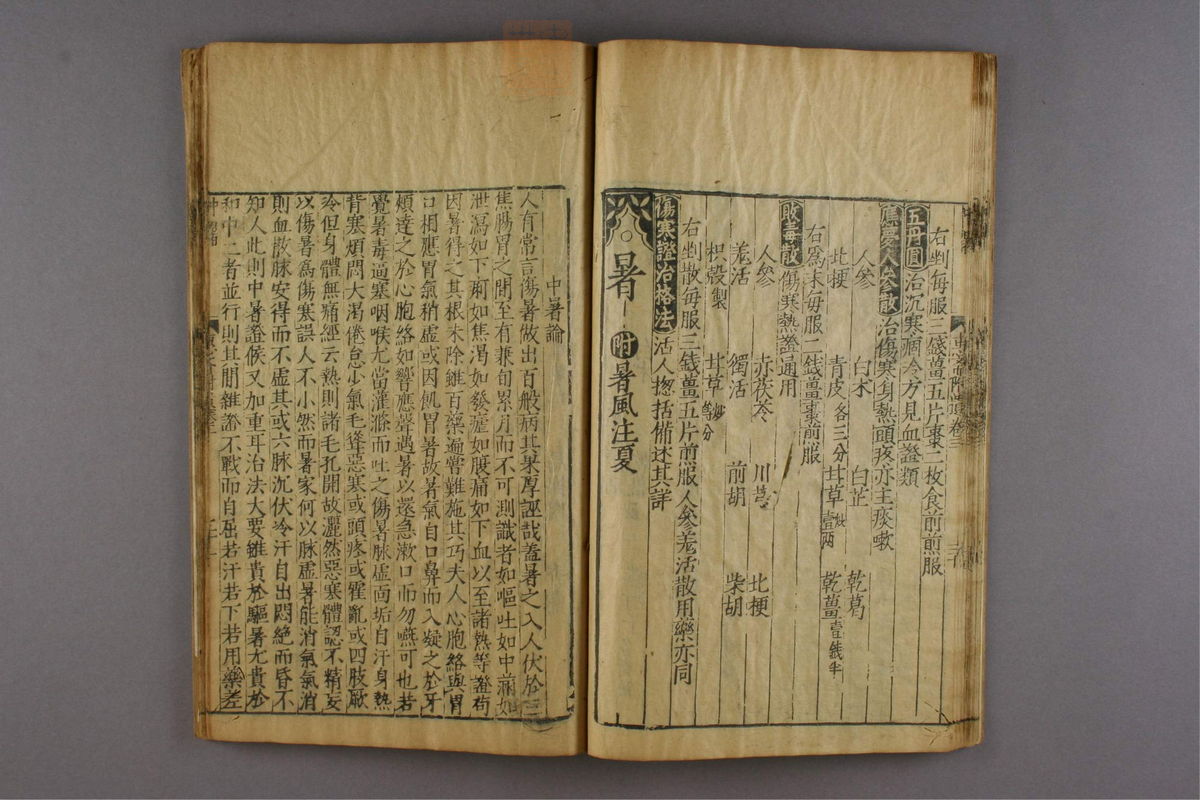 右剉每服三錢薑五片棗二枚食前煎服
五丹圓治沉寒痼冷方見血證類
應夢人參散治傷寒身熱頭疼亦主痰嗽
人參 白朮 白芷 乾葛
北梗 青皮各三分 甘草炒壹兩 乾薑壹錢半
右爲末每服二錢薑棗煎服
敗毒散傷寒熱證通用
人參 赤茯苓 川芎 北梗
羌活 獨活 前胡 柴胡
枳殼製 甘草炒等分
右剉散每服三錢薑五片煎服人參羌活散用藥亦同
傷寒證治格法活人揔括備述其詳
暑 附暑風注夏
中暑論
人有常言傷暑做出百般病其果厚誣哉蓋暑之入人伏於三
焦腸胃之間至有兼旬累月而不可測識者如嘔吐如中痛如
泄瀉如下痢如焦渴如發瘧如腹痛如下血以至諸熱等證苟
因暑得之其根未除雖百藥遍嘗難施其巧夫人心胞絡與胃
口相應胃氣稍虛或因飢冒暑故暑氣自口鼻而入凝之於牙
頰達之於心胞絡如響應聲遇暑以還急漱口而勿嚥可也若
覺暑毒逼塞咽喉尤當灌滌而吐之傷暑脉虛面垢自汗身熱
背寒煩悶大渴倦怠少氣毛聳惡寒或頭疼或霍亂或四肢厥
冷但身體無痛經云熱則諸毛孔開故灑然惡寒體認不精妄
以傷暑爲傷寒誤人不小然而暑家何以脉虛暑能消氣氣消
則血散脉安得而不虛其或六脉沉伏冷汗自出悶絕而昏不
知人此則中暑證候又加重耳治法大要雖貴於驅暑尤貴於
和中二者並行則其間雜證不戰而自屈若汗若下若用藥差